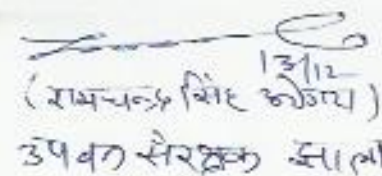 13/12
(रामचन्द्र सिंह
उप वन संरक्षक झाला